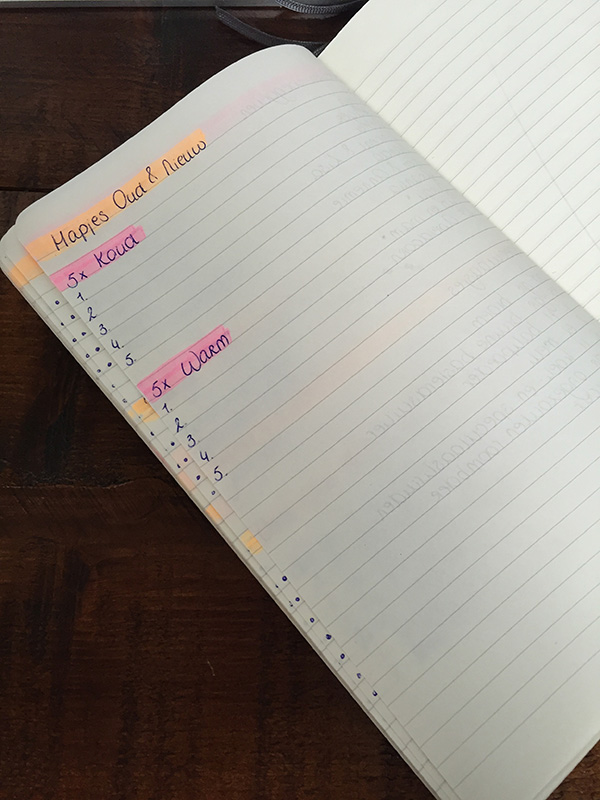 Hapjes Oud & Nieuw
5x Koud
1.
2
3.
4.
5.
5x Warm
1.
2.
3.
4.
5.